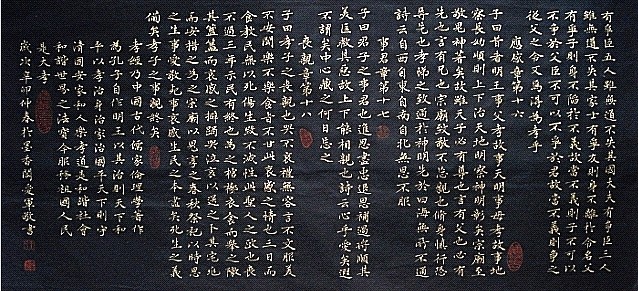 有爭臣五人雖無道不失其國大夫有爭臣三人
雖無道不失其家士有爭友則身不離於令名父
有爭子則身不陷於不義故當不義則子不可以
不爭於父臣不可以不爭於君故當不義則爭之
從父之令又焉得為孝乎
應感章第十六
子曰昔者明王事父孝故事天明事母孝故事地
察長幼順則上下治天地明察神明彰矣宗廟至
敬鬼神著矣故雖天子必有尊也言有父也必有
先也言有兄也宗廟致敬不忘親也脩身慎行恐
辱先也孝悌之致通於神明光於四海無所不通
詩云自西自東自南自北無思不服
事君章第十七
子曰君子之事君也進思盡忠退思補過將順其
美匡救其惡故上下能相親也詩云心乎愛矣遐
不謂矣中心藏之何日忘之
喪親章第十八
子曰孝子之喪親也哭不哀禮無容言不文服美
不安聞樂不樂食旨不甘此哀慼之情也三日而
食教民無以死傷生毀不滅性聖人之政也喪
不過三年示民有終也為之棺槨衣衾而舉之陳
其簠簋而哀慼之擗踴哭泣哀以送之卜其宅兆
而安措之為之宗廟以鬼享之春秋祭祀以時思
之生事愛敬死事哀慼生民之本盡矣死生之義
備矣孝子之事親終矣
孝經乃中國古代儒家倫理學著作
為孔子自作明王以其治則天下和
平以孝治身治家治國平天下則守
清國安家和人樂孝道是和諧社會
和諧世界之法寶今服務祖國人民
是大孝
歲次辛卯仲春於墨香閣愛軍敬書